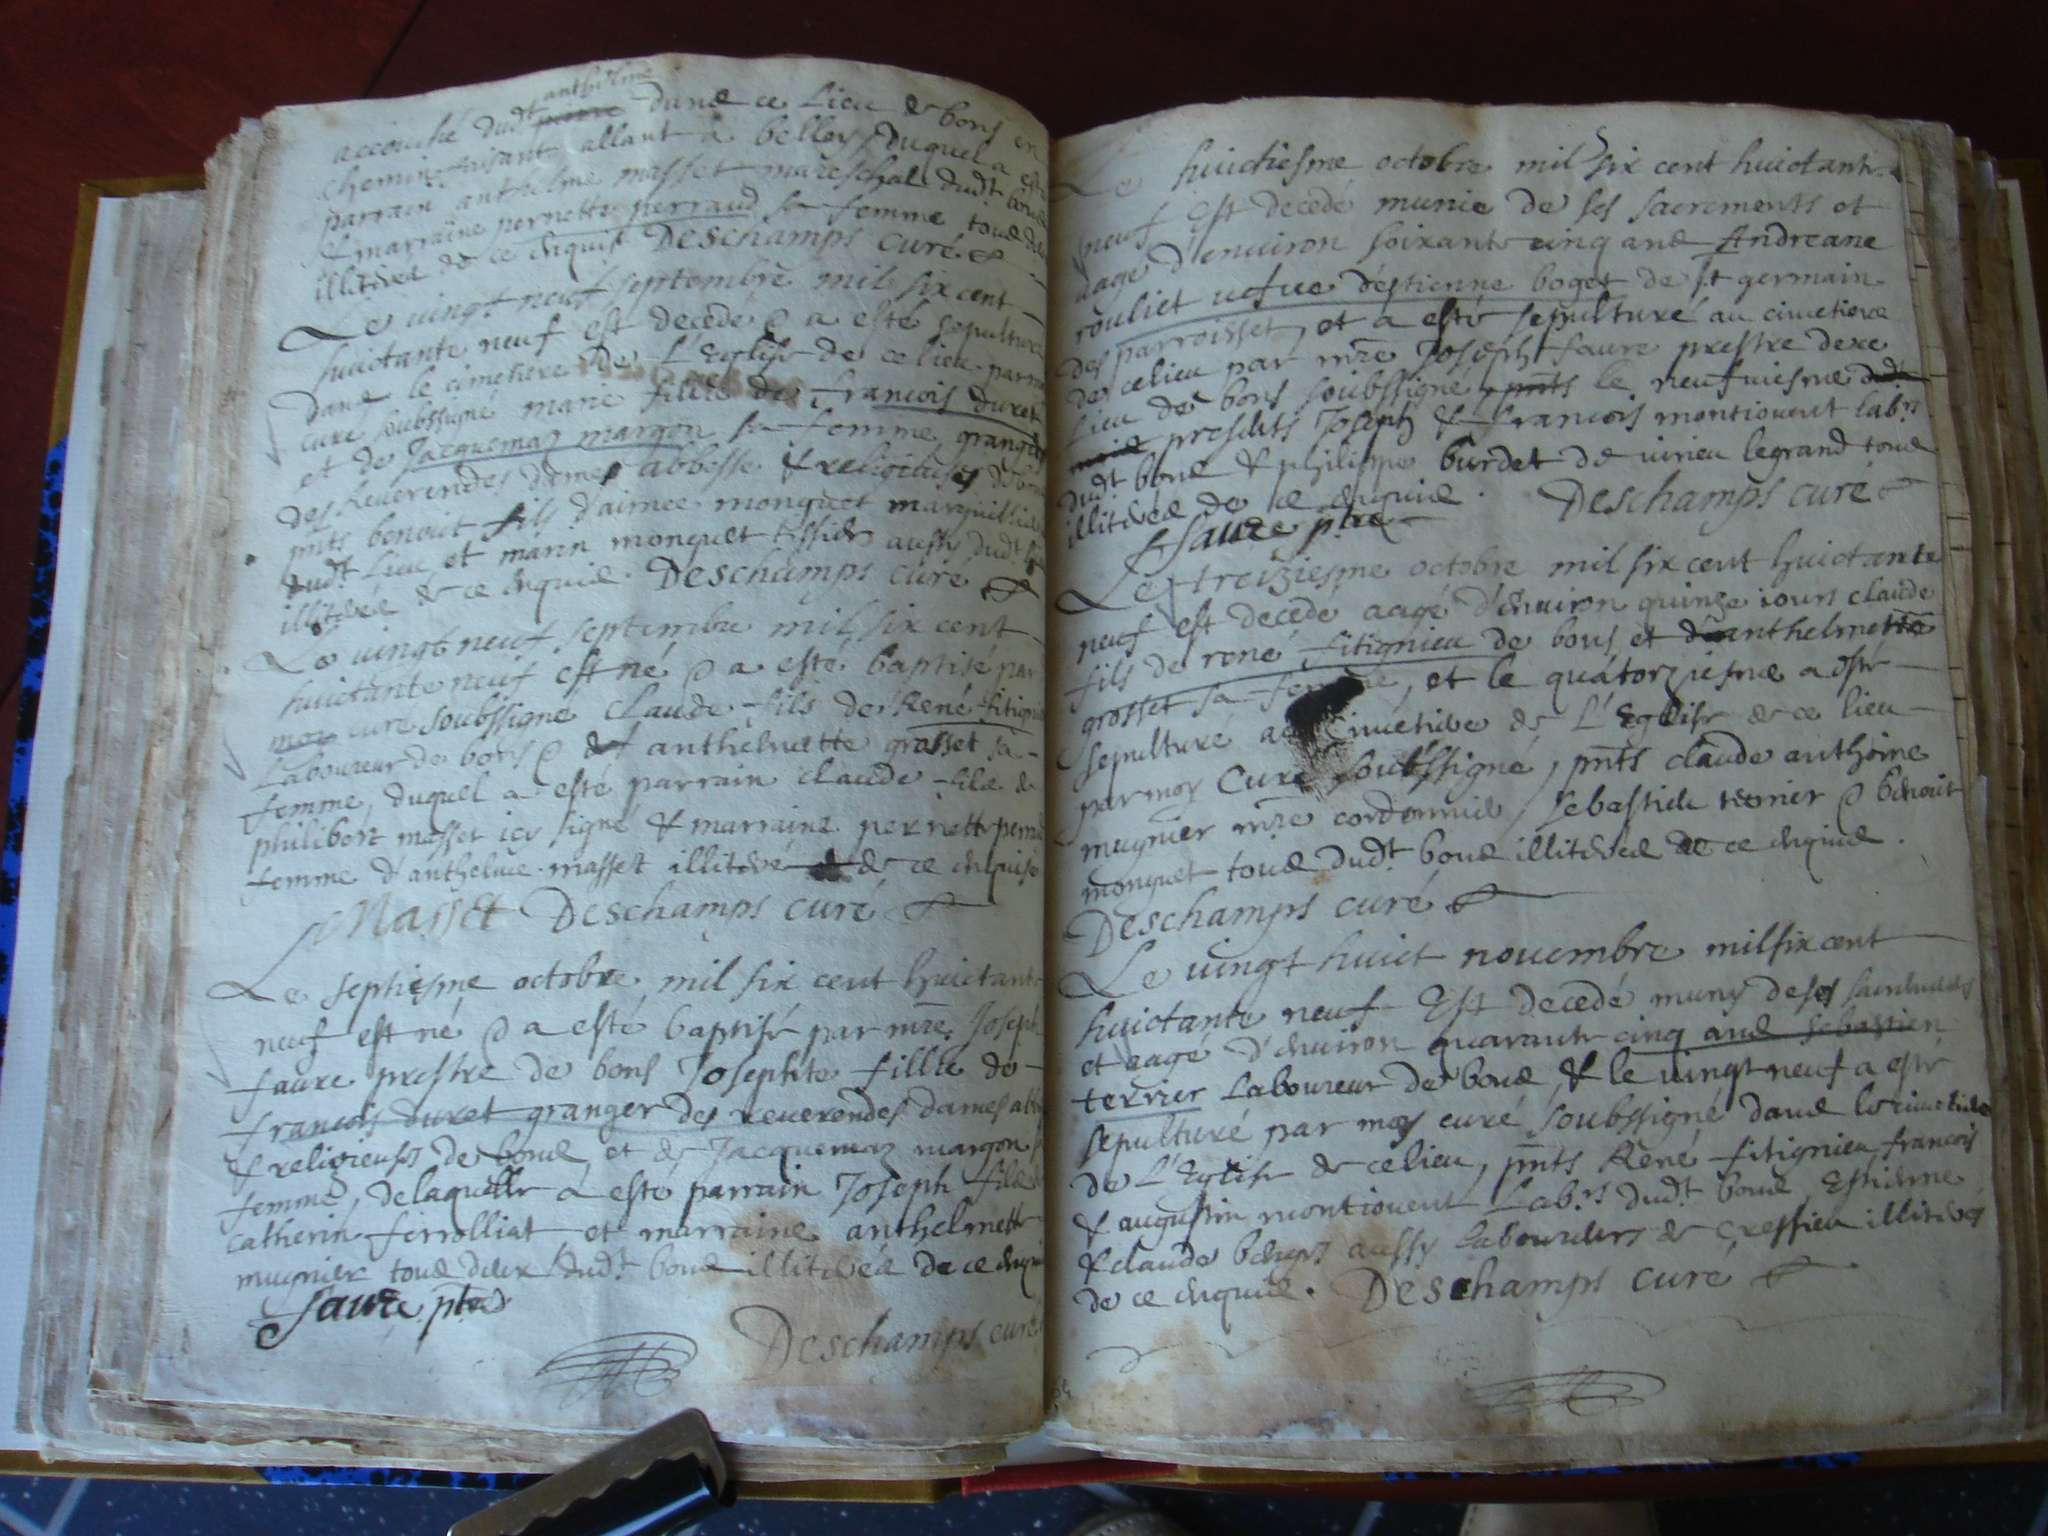 anthelme
accouché dudt pierre dans ce lieu de bons en
chemin faisant allant à belley, duquel a esté
parrain anthelme masset mareschal dudt bons
& marraine pernette perraud sa femme tous deux
illiterés de ce enquis Deschamps curé
Le vingt neuf septembre mil six cent
huictante neuf est decedé & a esté sepulturé
dans le cimetiere de L'Eglise de ce lieu par moy
curé soubssigné marie fillie de francois duret
et de Jacquemaz margon sa femme granger
des Reverendes dames abbesse & religieuses de bons
pnts benoit fils d'aimee monquet marguillier
dudt Lieu et marin monquet tissier aussy dudt
illiterés de ce enquis. Deschamps curé
Le vingt neuf septembre mil six cent
huictante neuf est né & a esté baptisé par
moy curé soubssigné Claude fils de René fitignieu
Laboureur de bons & de anthelmette grosset sa
femme, duquel a esté parrain claude fils de
philibert masset icy signé & marraine pernette perraud
femme d'anthelme masset illiteré de ce enquise
Masset Deschamps curé
Le septiesme octobre mil six cent huictante
neuf est né & a esté baptisé par mre Joseph
faure prestre de bons Josephte fillie de
francois duret granger des reverendes dames abbesse
& religieuses de bons et de Jacquemaz margon sa
femme, de laquelle a esté parrain Joseph fils de
catherin ferrolliat et marraine anthelmette
mugnier tous deux dudt bons illiterés de ce enquis
faure ptre
Deschamps curé
Le huictiesme octobre mil six cent huictante
neuf Est decedé munie de ses sacrements et
aage d'environ soixante cinq ans Andreane
rouliet vefve d'estienne boget de st germain
des parroisses, et a esté sepulturé au cimetiere
de ce lieu par mre Joseph faure prestre de ce
Lieu de bons soubssigné, pnts le neufviesme dudt
mois presents Joseph & francois montiouent labrs
dudt bons & philippe burdet de virieu le grand tous
illiterés de ce enquis. Deschamps curé
faure ptre
Le treiziesme octobre mil six cent huictante
neuf est decedé aagé d'environ quinze iours claude
fils de rené fitignieu de bons et d'anthelmette
grosset sa femme, et le quatorziesme a esté
sepulturé au cimetiere de L'Eglise de ce lieu
par moy Curé soubssigné, pnts claude anthoine
mugnier mre cordonnier, sebastien terrier & benoit
monquet tous dudt bons illiterés de ce enquis.
Deschamps curé
Le vingt huict novembre mil six cent
huictante neuf Est decedé muny de ses sacrements
et aagé d'environ quarante cinq ans sebastien
terrier Laboureur de bons, & le vingt neuf a esté
sepulturé par moy curé soubssigné dans le cimetiere
de L'Eglise de ce lieu, pnts René fitignieu francois
& augustin montiouent Labrs dudt bons Estienne
& claude aussy laboureurs de cressieu illiterés
de ce enquis. Deschamps curé